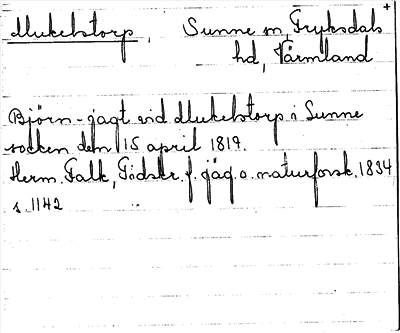 Mukelstorp, Sunne sn, Fryksdals +
hd, Värmland
Björn-jagt vid Mukelstorp i Sunne
socken den 15 april 1819.
Herm. Falk, Tidskr. f. jäg. o. naturforsk. 1834
s. 1142